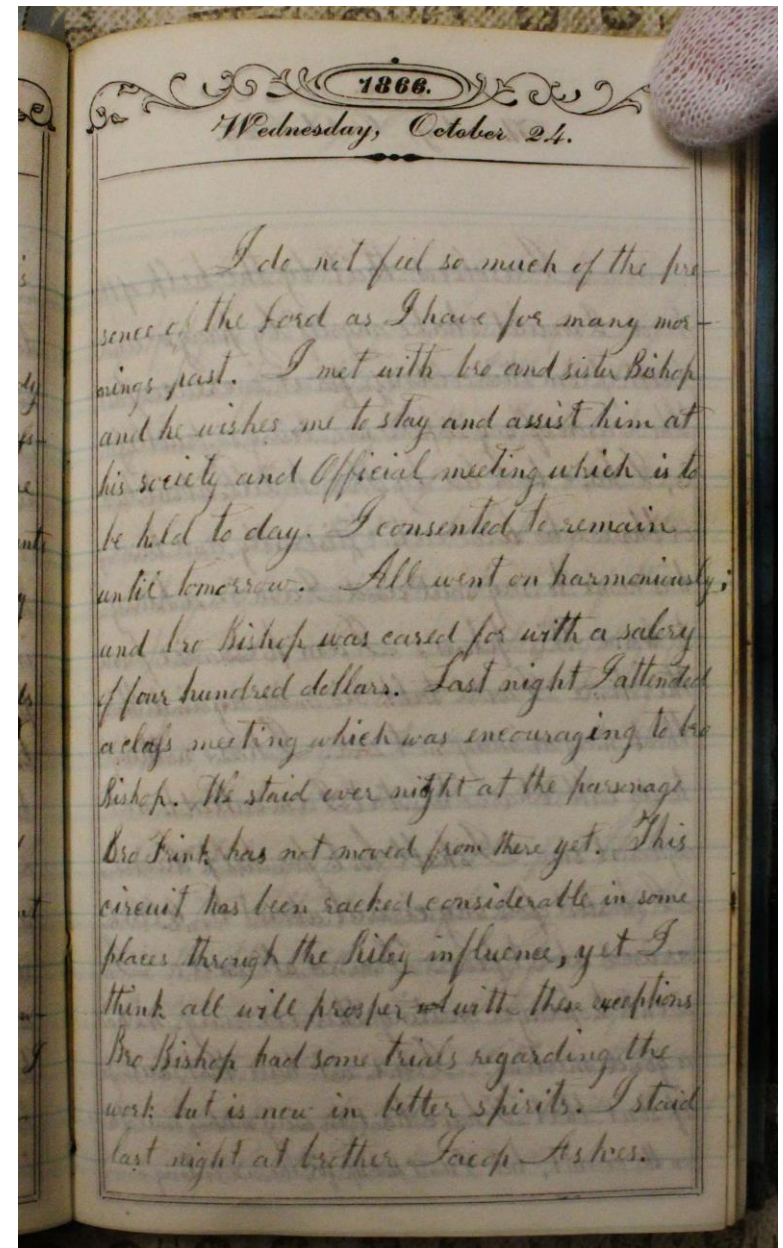 1866.
Wednesday, October 24.
I do not feel so much of the pre-
sence of the Lord as I have for many mor-
nings past. I met with bro and sister Bishop
and he wishes me to stay and assist him at
his society and Official meeting which is to
be held to day. I consented to remain
until tomorrow. All went on harmoniously;
and bro Bishop was cared for with a salery
of four hundred dollars. Last night I attended
a class meeting which was encouraging to bro
Bishop. We staid over night at the parsonage
Bro Frink has not moved from there yet. This
circuit has been racked considerable in some
places through the Riley influence, yet I
think all will prosper with these exceptions
Bro Bishop had some trials regarding the
work but is now in better spirits. I staid
last night at brother Jacop